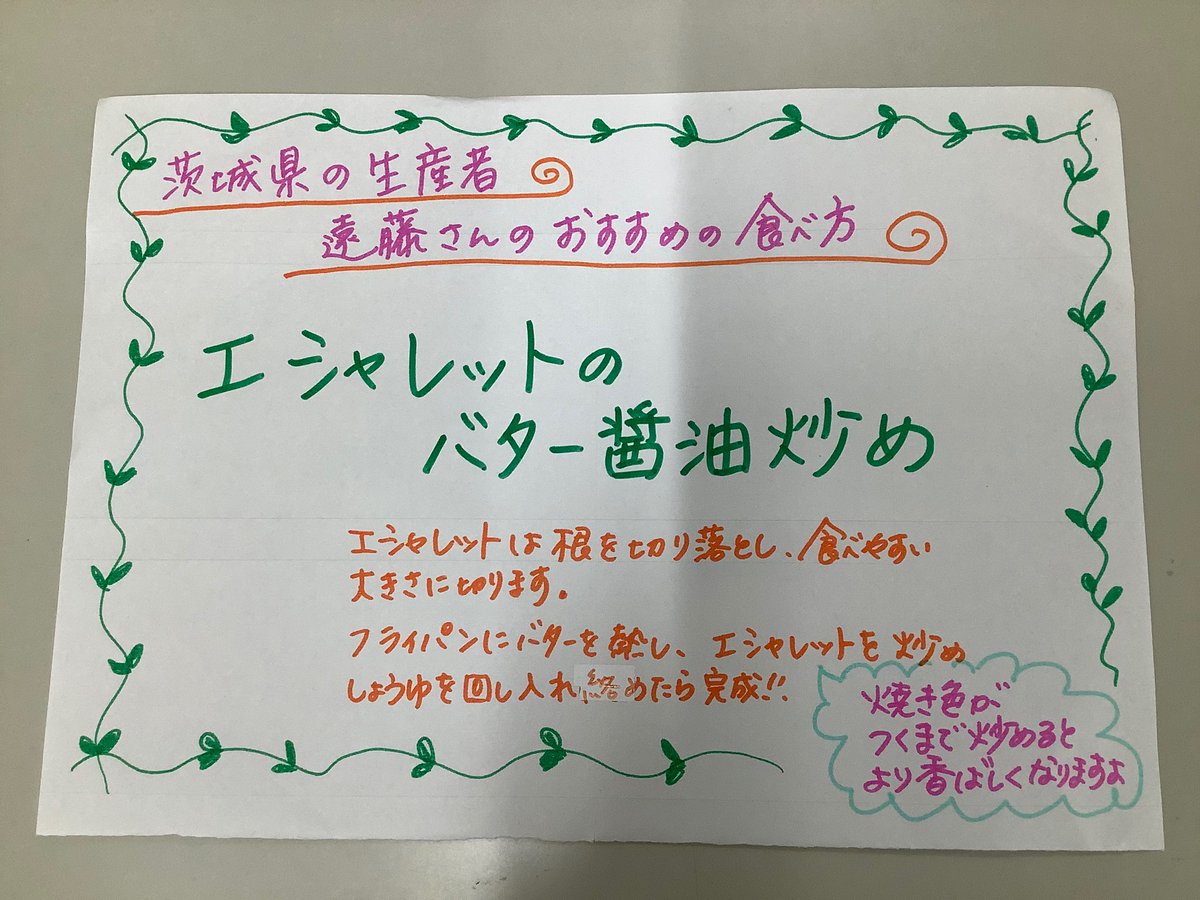 茨城県の生産者
遠藤さんのおすすめの食べ方
エシャレットの
バター醤油炒め
エシャレットは根を切り落とし、食べやすい
大きさに切ります。
フライパンにバターを熱し、エシャレットを炒め
しょうゆを回し入れ絡めたら完成!!
焼き色が
つくまで炒めると
より香ばしくなりますよ